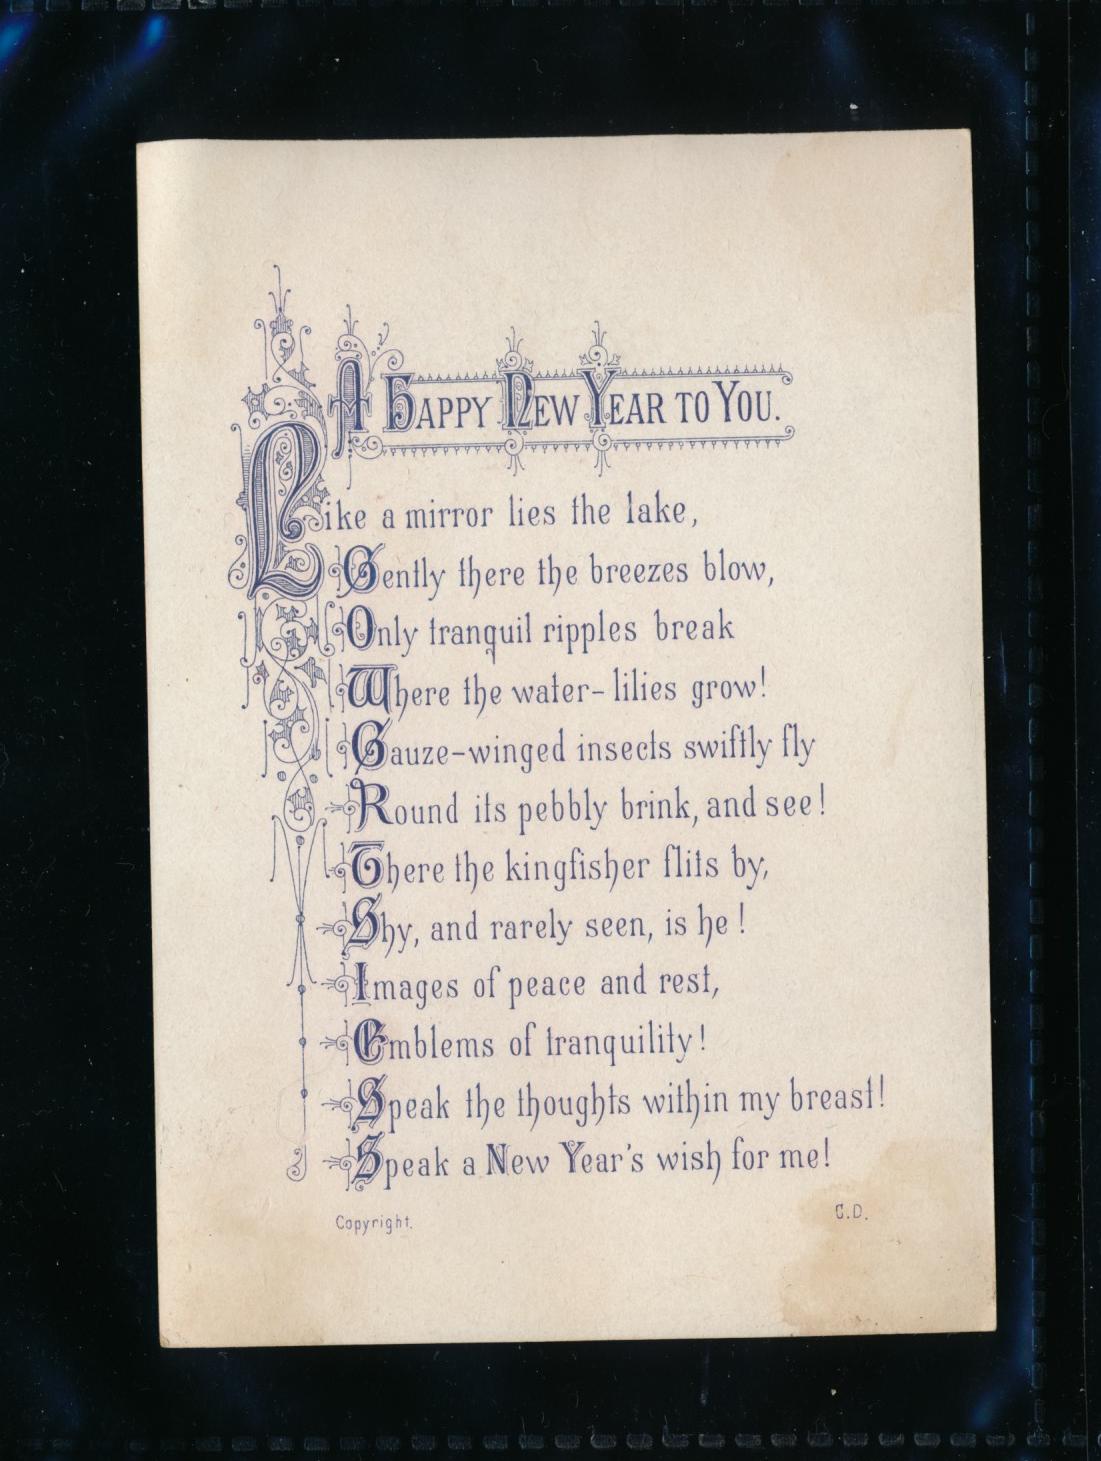 A Happy New Year to You.
Like a mirror lies the lake,
Gently there the breezes blow,
Only tranquil ripples break
Where the water-lilies grow!
Gauze-winged insects swiftly fly
Round its pebbly brink, and see!
There the kingfisher flits by,
Shy, and rarely seen, is he!
Images of peace and rest,
Emblems of tranquility!
Speak the thoughts within my breast!
Speak a New Year's wish for me!
Copyright.
C.D.